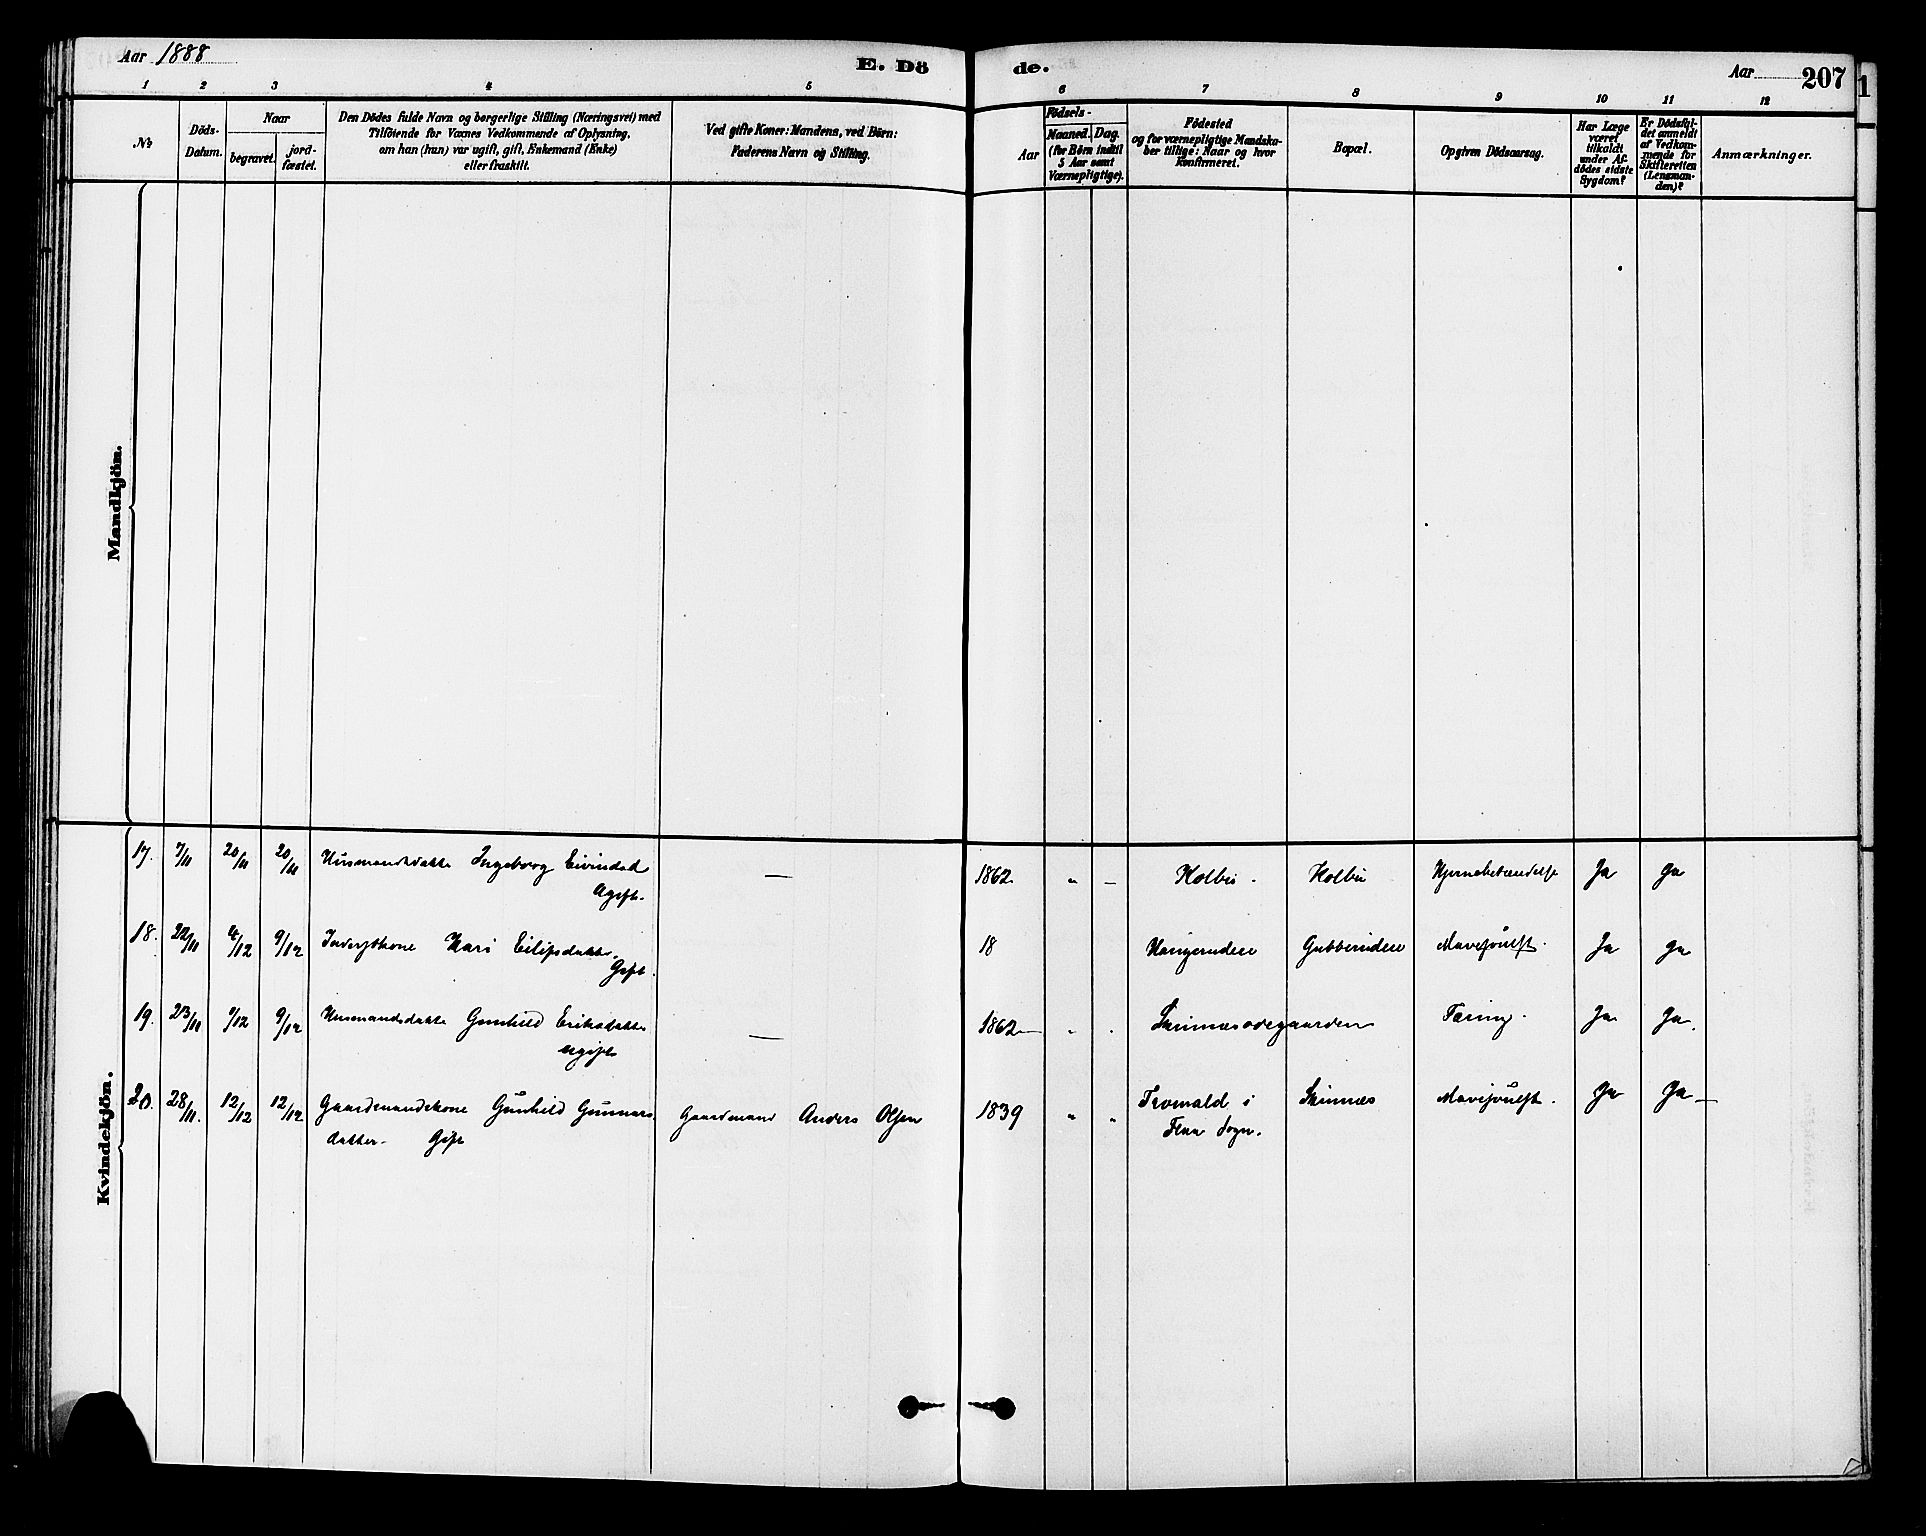 Aar 1888
E. Dö
de.
Aar 207
1
1 2 3 4 5 6 7 8 9 10 11 12
No
Döds-Datum.
Naar
begravet.
jord-fæstet.
Den Dödes fulde Navn og borgerlige Stilling (Næringsvei) med
Tilföiende for Voxnes Vedkommende af Oplysning,
om han (hun) var ugift, gift, Enkemand (Enke)
eller fraskilt.
Ved gifte Koner: Mandens, ved Börn:
Faderens Navn og Stilling.
Födsels-
Aar
Maaned. Dag.
(for Börn indtil
5 Aar samt
Værnepligtige).
Födested
og for værnepligtige Mandska-
ber tillige: Naar og hvor
Konfirmeret.
Bopæl.
Opgiven Dödsaarsag.
Har Læge
været
tilkaldt
under Af-
dödes sidste
Sygdom?
Er Dödsfal-
det anmeldt
af Vedkom-
mende for
Skifteretten
(Lensman-
den)?
Anmærkninger.
Mandkjön.
Kvindekjön.
17. 7/11 20/11 20/11 Husmandsdatte Ingeborg Eivindsd — 1862 " — Ja Ja
Ugift.
18. 22/11 4/12 9/12 Kari Eilifsdatte 18 Gubberudeie Ja Ja
Gift
19. 23/11 9/12 Husmandsdatte Gunhild Eriksdatte — 1862 — " " Tæring. Ja Ja.
ugift
20. 28/11. 12/12 12/12 Gaardmandskone Gunhild Gunnars- Gaardmand Anders Olsen 1839 " " Tromald i Ja Ja —
datter. Gift Flaa Sogn.